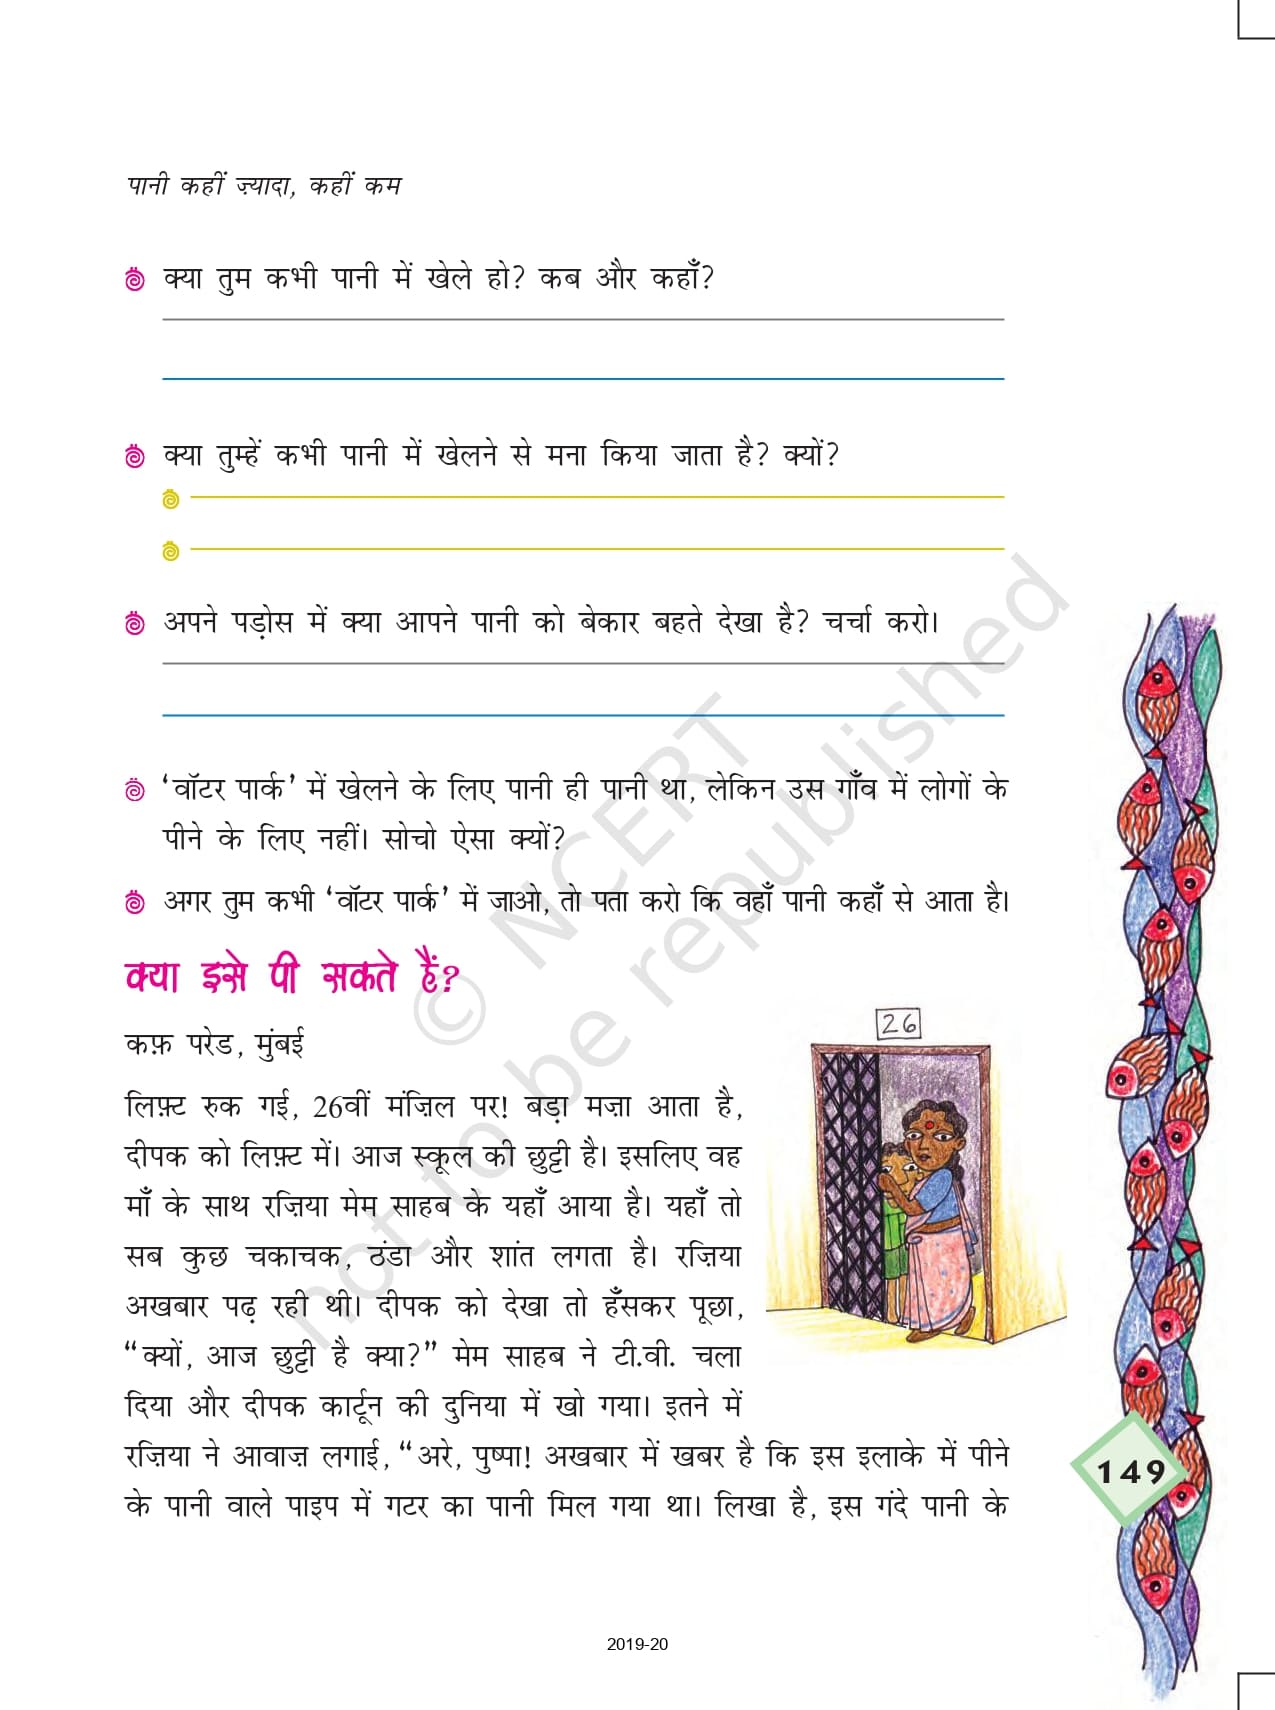 पानी कहीं ज़्यादा, कहीं कम
क्या तुम कभी पानी में खेले हो? कब और कहाँ?
क्या तुम्हें कभी पानी में खेलने से मना किया जाता है? क्यों?
अपने पड़ोस में क्या आपने पानी को बेकार बहते देखा है? चर्चा करो।
‘वॉटर पार्क’ में खेलने के लिए पानी ही पानी था, लेकिन उस गाँव में लोगों के
पीने के लिए नहीं। सोचो ऐसा क्यों?
अगर तुम कभी ‘वॉटर पार्क’ में जाओ, तो पता करो कि वहाँ पानी कहाँ से आता है।
क्या इसे पी सकते हैं?
कफ़ परेड, मुंबई
26
लिफ़्ट रुक गई, 26वीं मंज़िल पर! बड़ा मज़ा आता है,
दीपक को लिफ़्ट में। आज स्कूल की छुट्टी है। इसलिए वह
माँ के साथ रज़िया मेम साहब के यहाँ आया है। यहाँ तो
सब कुछ चकाचक, ठंडा और शांत लगता है। रज़िया
अखबार पढ़ रही थी। दीपक को देखा तो हँसकर पूछा,
“क्यों, आज छुट्टी है क्या?” मेम साहब ने टी.वी. चला
दिया और दीपक कार्टून की दुनिया में खो गया। इतने में
रज़िया ने आवाज़ लगाई, “अरे, पुष्पा! अखबार में खबर है कि इस इलाके में पीने
के पानी वाले पाइप में गटर का पानी मिल गया था। लिखा है, इस गंदे पानी के
149
2019-20
© NCERT
not to be republished